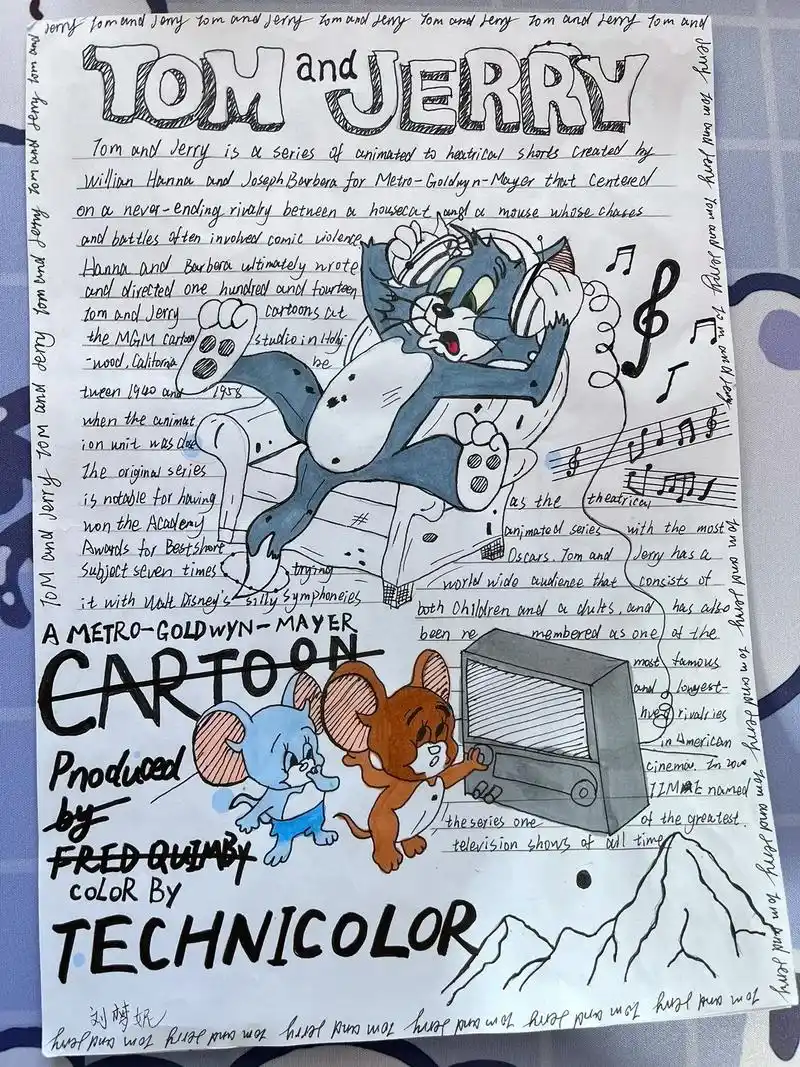 Jerry Tom and Jerry Tom and Jerry Tom and Jerry Tom and Jerry Tom and Jerry Tom and
TOM and JERRY
Tom and Jerry is a series of animated to heatrical shorts created by
Willian Hanna and Joseph Barbera for Metro-Goldwyn-Mayer that centered
on a never-ending rivalry between a housecat and a mouse whose chases
and battles often involved comic violence
Hanna and Barbera ultimately wrote
and directed one hundred and fourteen
tom and Jerry cartoons at
the MGM cartoon studio in Holly
-wood, California be
tween 1940 and 1958
when the animat
ion unit was
The original series
is notable for having
won the Academy
Awards for Best short
Subject seven times trying
it with Walt Disney's silly Symphoneies
as the theatrical
animated series with the most
Oscars. Tom and Jerry has a
world wide audience that consists of
both Children and a dults. and has also
been re membered as one of the
most famous
and longest-
lived rivalries
in American
cinema. In 2000
TIME named
the series one of the greatest.
television shows of all time
A METRO-GOLDWYN-MAYER
CARTOON
Produced
by
FRED QUIMBY
COLOR BY
TECHNICOLOR
Tom and Jerry Tom and Jerry Tom and Jerry Tom and Jerry
Jerry Tom and Jerry Tom and Jerry Tom and Jerry
Tom and Jerry Tom and Jerry Tom and Jerry Tom and Jerry
Tom and Jerry Tom and Jerry Tom and Jerry Tom and Jerry Tom and Jerry Tom and Jerry